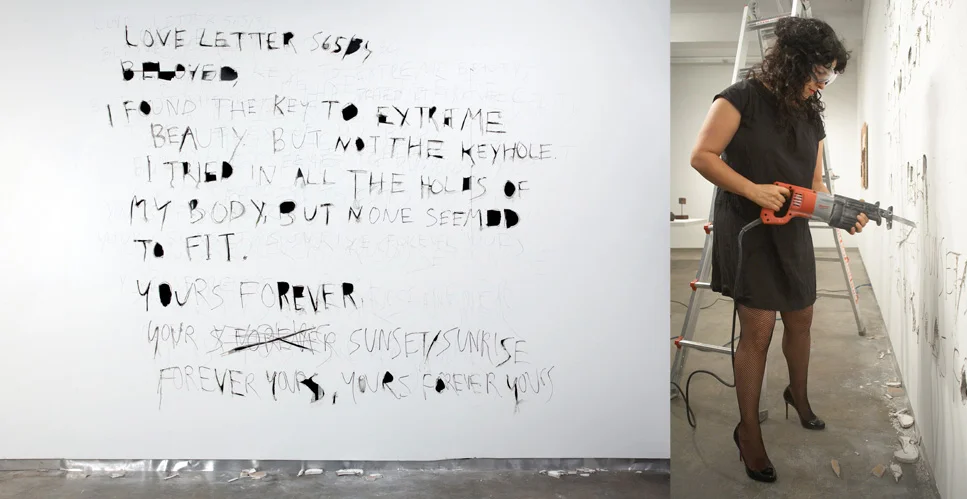 LOVE LETTER 5658,
BELOVED,
I FOUND THE KEY TO EXTREME
BEAUTY. BUT NOT THE KEYHOLE.
I TRIED IN ALL THE HOLES OF
MY BODY, BUT NONE SEEMDD
TO FIT.
YOURS FOREVER,
YOUR SUNSET/SUNRISE
FOREVER YOURS, YOURS FOREVER YOURS